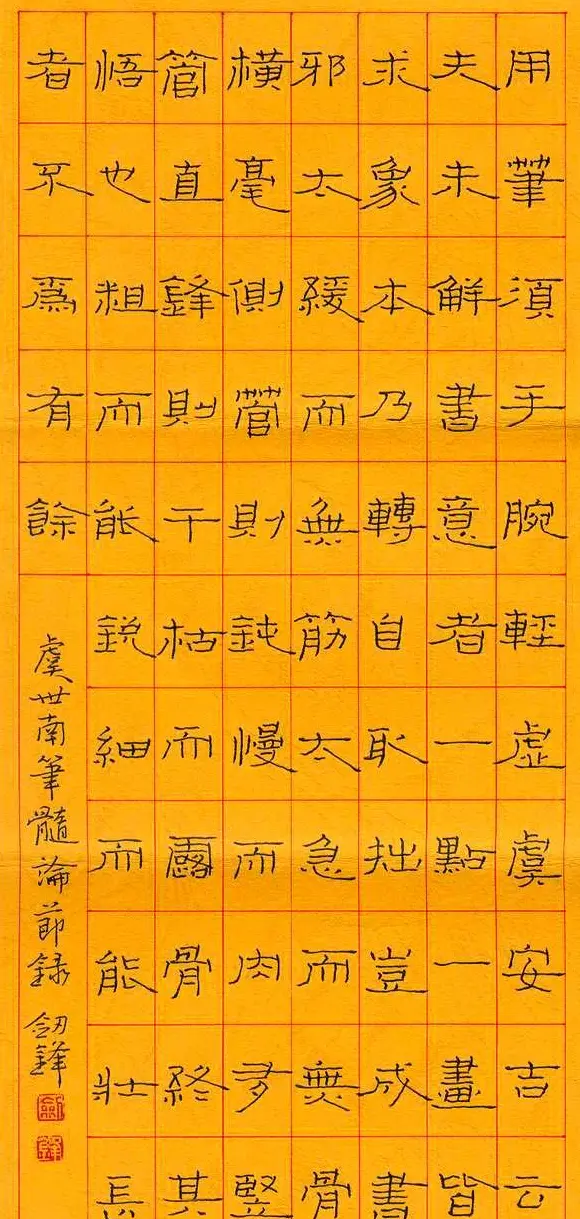 用筆須手腕輕虛虞安吉云
夫未解書意者一點一畫皆
求象本乃轉自取拙豈成書
邪太緩而無筋太急而無骨
橫毫側管則鈍慢而肉多豎
管直鋒則干枯而露骨終其
悟也粗而能銳細而能壯長
者不爲有餘
虞世南筆髓論節錄 劍鋒
劍
鋒